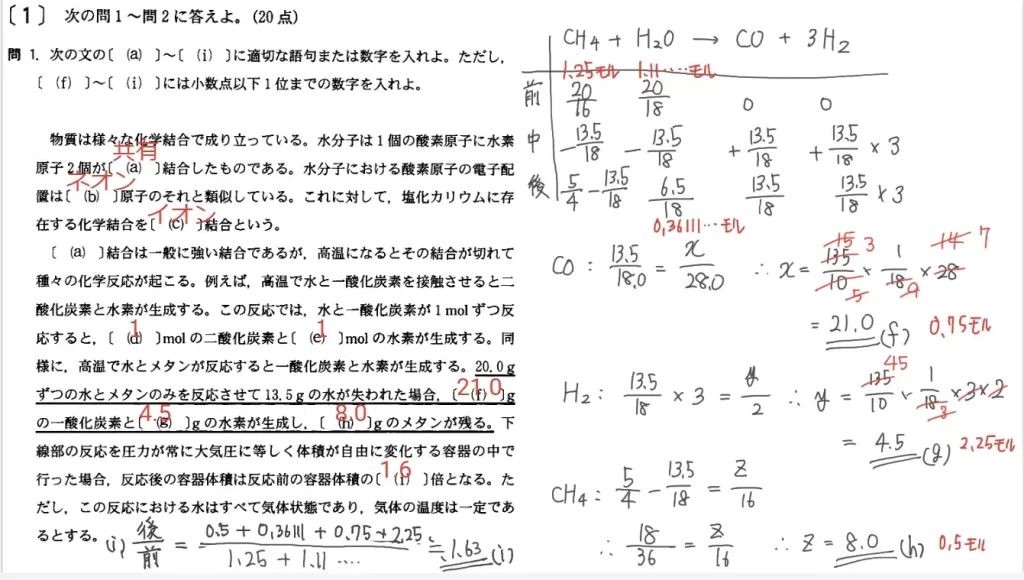 〔1〕 次の問1～問2に答えよ。(20点)
問 1. 次の文の〔 (a) 〕～〔 (i) 〕に適切な語句または数字を入れよ。ただし,
〔 (f) 〕～〔 (i) 〕には小数点以下1位までの数字を入れよ。
物質は様々な化学結合で成り立っている。水分子は1個の酸素原子に水素
共有
原子2個が〔 (a) 〕結合したものである。水分子における酸素原子の電子配
ネオン
置は〔 (b) 〕原子のそれと類似している。これに対して, 塩化カリウムに存
イオン
在する化学結合を〔 (c) 〕結合という。
〔 (a) 〕結合は一般に強い結合であるが, 高温になるとその結合が切れて
種々の化学反応が起こる。例えば, 高温で水と一酸化炭素を接触させると二
酸化炭素と水素が生成する。この反応では, 水と一酸化炭素が1molずつ反
1 1
応すると, 〔 (d) 〕molの二酸化炭素と〔 (e) 〕molの水素が生成する。同
様に, 高温で水とメタンが反応すると一酸化炭素と水素が生成する。20.0g
ずつの水とメタンのみを反応させて13.5gの水が失われた場合, 〔 (f) 〕g
21.0
の一酸化炭素と〔 (g) 〕gの水素が生成し, 〔 (h) 〕gのメタンが残る。下
4.5 8.0
線部の反応を圧力が常に大気圧に等しく体積が自由に変化する容器の中で
行った場合, 反応後の容器体積は反応前の容器体積の〔 (i) 〕倍となる。た
1.6
だし, この反応における水はすべて気体状態であり, 気体の温度は一定であ
るとする。
(i) 後/前 = (0.5 + 0.36111 + 0.75 + 2.25)/(1.25 + 1.11 ....) ≒ 1.63 (i)
CH4 + H2O → CO + 3H2
1.25モル 1.11‥‥モル
前 20/16 20/18 0 0
中 -13.5/18 -13.5/18 +13.5/18 +13.5/18 × 3
後 5/4 - 13.5/18 6.5/18 13.5/18 13.5/18 × 3
0.36111‥モル
CO : 13.5/18.0 = x/28.0 ∴ x = 135/10 × 1/18 × 28
15 3 5 9 14 7
= 21.0 (f) 0.75モル
H2 : 13.5/18 × 3 = y/2 ∴ y = 135/10 × 1/18 × 3 × 2
45 3
= 4.5 (g) 2.25モル
CH4 : 5/4 - 13.5/18 = z/16
∴ 18/36 = z/16 ∴ z = 8.0 (h) 0.5モル